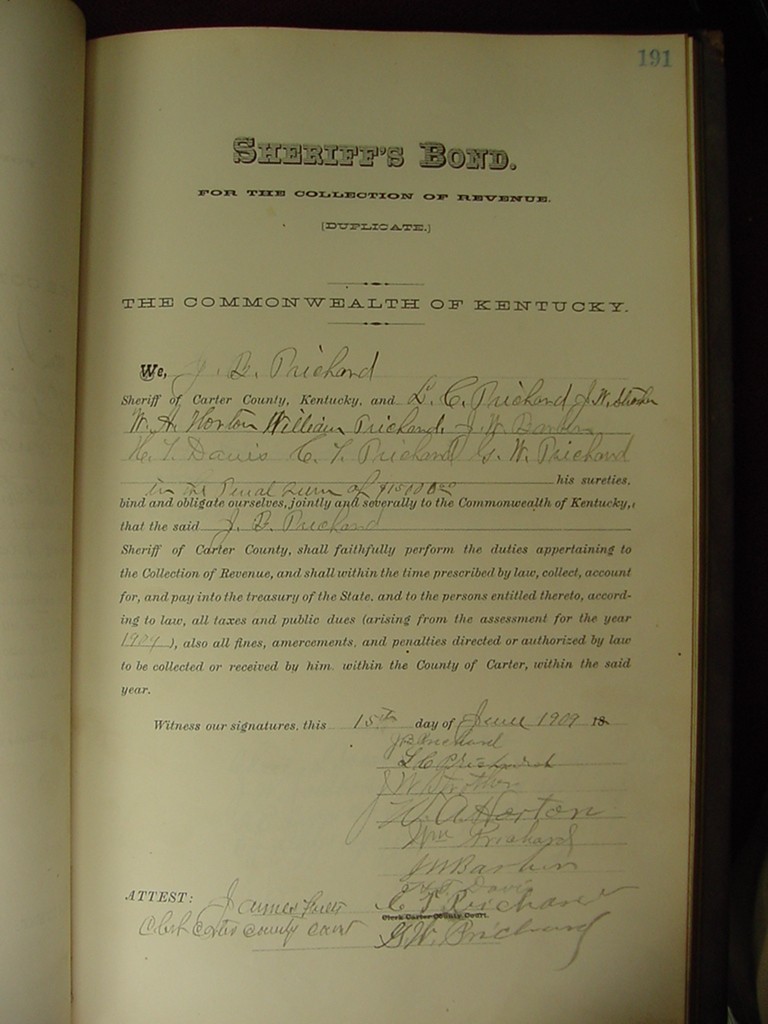 191
SHERIFF'S BOND.
FOR THE COLLECTION OF REVENUE.
(DUPLICATE.)
THE COMMONWEALTH OF KENTUCKY.
We, J. B. Prichard
Sheriff of Carter County, Kentucky, and L. C. Prichard J. W. Strother
W. A. Horton William Prichard, J. W.
H. T. Davis C. T. Prichard G. W. Prichard
in the Penal sum of his sureties,
bind and obligate ourselves, jointly and severally to the Commonwealth of Kentucky,
that the said J. B. Prichard
Sheriff of Carter County, shall faithfully perform the duties appertaining to
the Collection of Revenue, and shall within the time prescribed by law, collect, account
for, and pay into the treasury of the State, and to the persons entitled thereto, accord-
ing to law, all taxes and public dues (arising from the assessment for the year
1909), also all fines, amercements, and penalties directed or authorized by law
to be collected or received by him, within the County of Carter, within the said
year.
Witness our signatures, this 15th day of June 1909 18
J B Prichard
L C Prichard
J W Strother
W. A. Horton
Wm Prichard
J W
H. T. Davis
ATTEST: James C T Prichard
Clerk Carter County Court.
Clerk Carter County Court G. W. Prichard